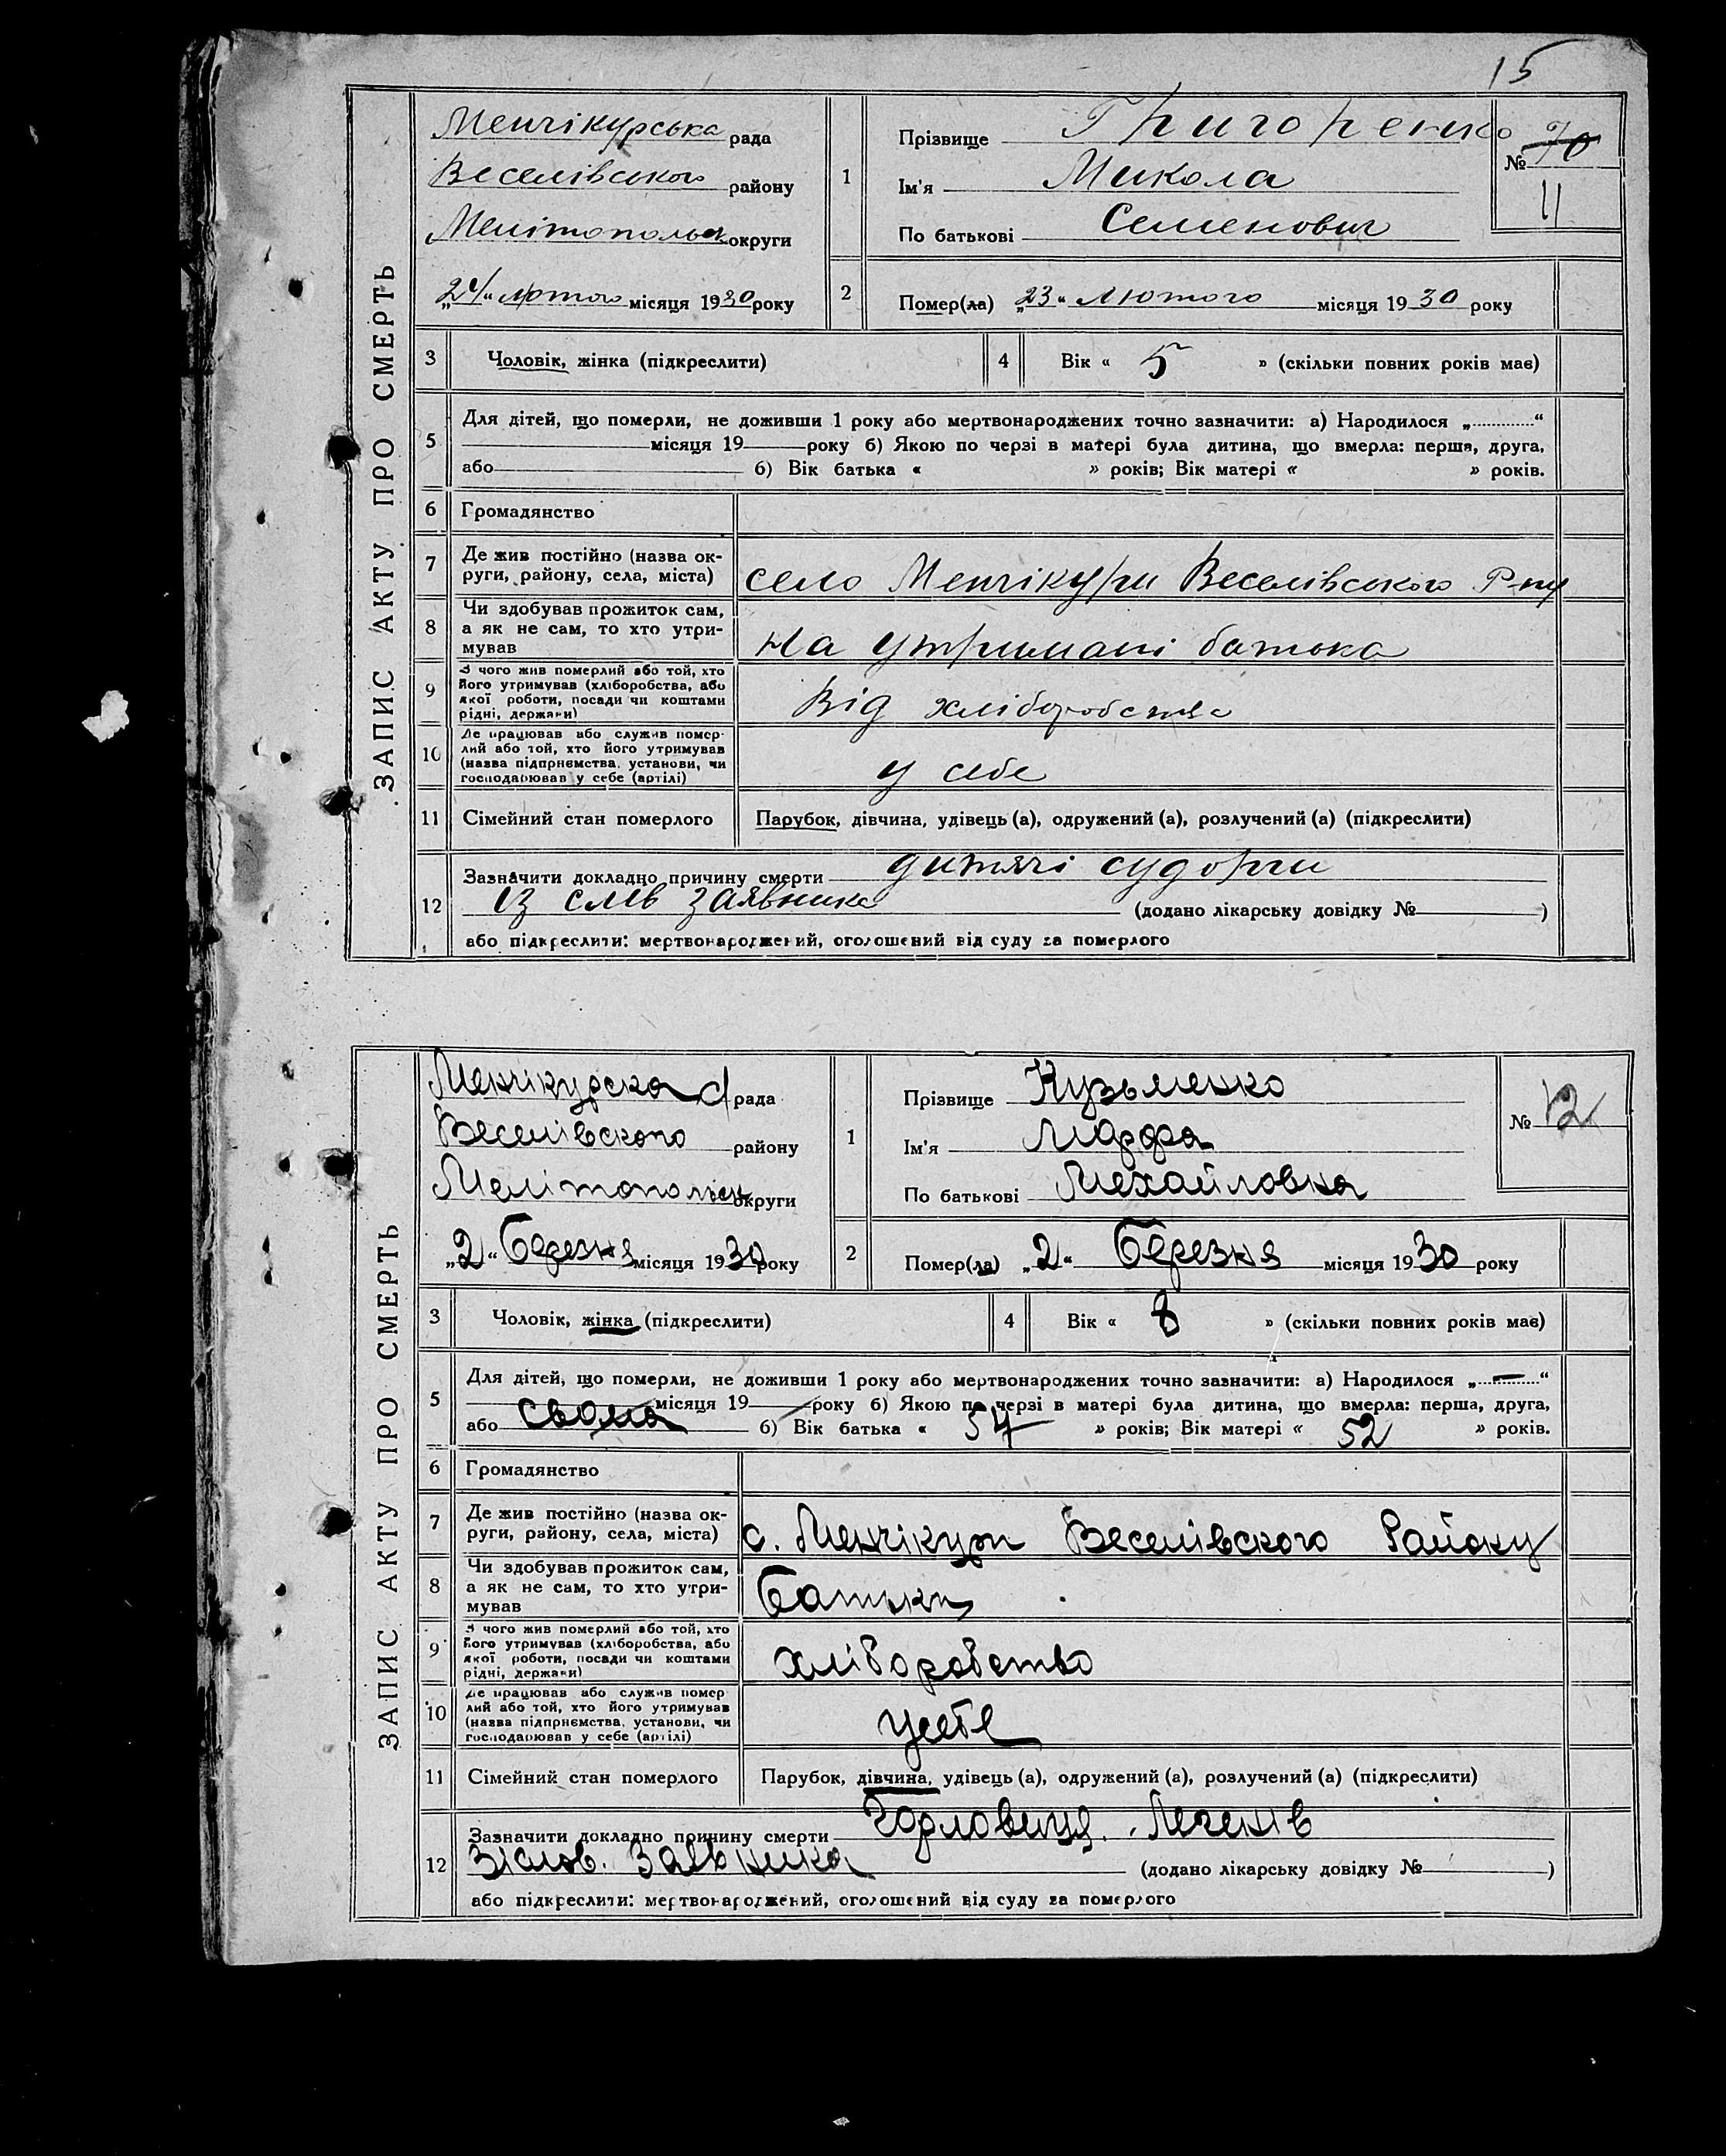 15
ЗАПИС АКТУ ПРО СМЕРТЬ
Менчікурська рада
Веселівського району
Мелітопольск округи
„24“ лютого місяця 1930 року
1
Прізвище Григоренко
Ім'я Микола
По батькові Семенович
№ 70
11
2
Помер(ла) „23“ Лютого місяця 1930 року
3 Чоловік, жінка (підкреслити)
4 Вік « 5 » (скільки повних років має)
5
Для дітей, що померли, не доживши 1 року або мертвонароджених точно зазначити: а) Народилося „............“
місяця 19 року б) Якою по черзі в матері була дитина, що вмерла: перша, друга,
або б) Вік батька « » років; Вік матері « » років.
6 Громадянство
7 Де жив постійно (назва ок-
руги, району, села, міста) село Менчікури Веселівського Р-ну
8 Чи здобував прожиток сам,
а як не сам, то хто утри-
мував На утримані батька
9 З чого жив померлий або той, хто
його утримував (хліборобства, або
якої роботи, посади чи коштами
рідні, держави) Від хліборобства
10 Де працював або служив помер-
лий або той, хто його утримував
(назва підприємства, установи, чи
господарював у себе (артілі) у себе
11 Сімейний стан померлого Парубок, дівчина, удівець (а), одружений (а), розлучений (а) (підкреслити)
12
Зазначити докладно причину смерти дитячі судорги
із слів заявника (додано лікарську довідку № )
або підкреслити: мертвонароджений, оголошений від суду за померлого
ЗАПИС АКТУ ПРО СМЕРТЬ
Менчікурска с/ рада
Веселівского району
Мелітопольск округи
„2“ Березня місяця 1930 року
1
Прізвище Кузьменко
Ім'я Марфа
По батькові Мехайловна
№ 12
2
Помер(ла) „2“ Березня місяця 1930 року
3 Чоловік, жінка (підкреслити)
4 Вік « 8 » (скільки повних років має)
5
Для дітей, що померли, не доживши 1 року або мертвонароджених точно зазначити: а) Народилося „—“
місяця 19 року б) Якою по черзі в матері була дитина, що вмерла: перша, друга,
або сьома б) Вік батька « 54 » років; Вік матері « 52 » років.
6 Громадянство
7 Де жив постійно (назва ок-
руги, району, села, міста) с. Менчікури Веселівского Району
8 Чи здобував прожиток сам,
а як не сам, то хто утри-
мував Батьки
9 З чого жив померлий або той, хто
його утримував (хліборобства, або
якої роботи, посади чи коштами
рідні, держави) хліборобство
10 Де працював або служив помер-
лий або той, хто його утримував
(назва підприємства, установи, чи
господарював у себе (артілі) усебе
11 Сімейний стан померлого Парубок, дівчина, удівець (а), одружений (а), розлучений (а) (підкреслити)
12
Зазначити докладно причину смерти Легенів
Зіслов. Заявника (додано лікарську довідку № )
або підкреслити: мертвонароджений, оголошений від суду за померлого